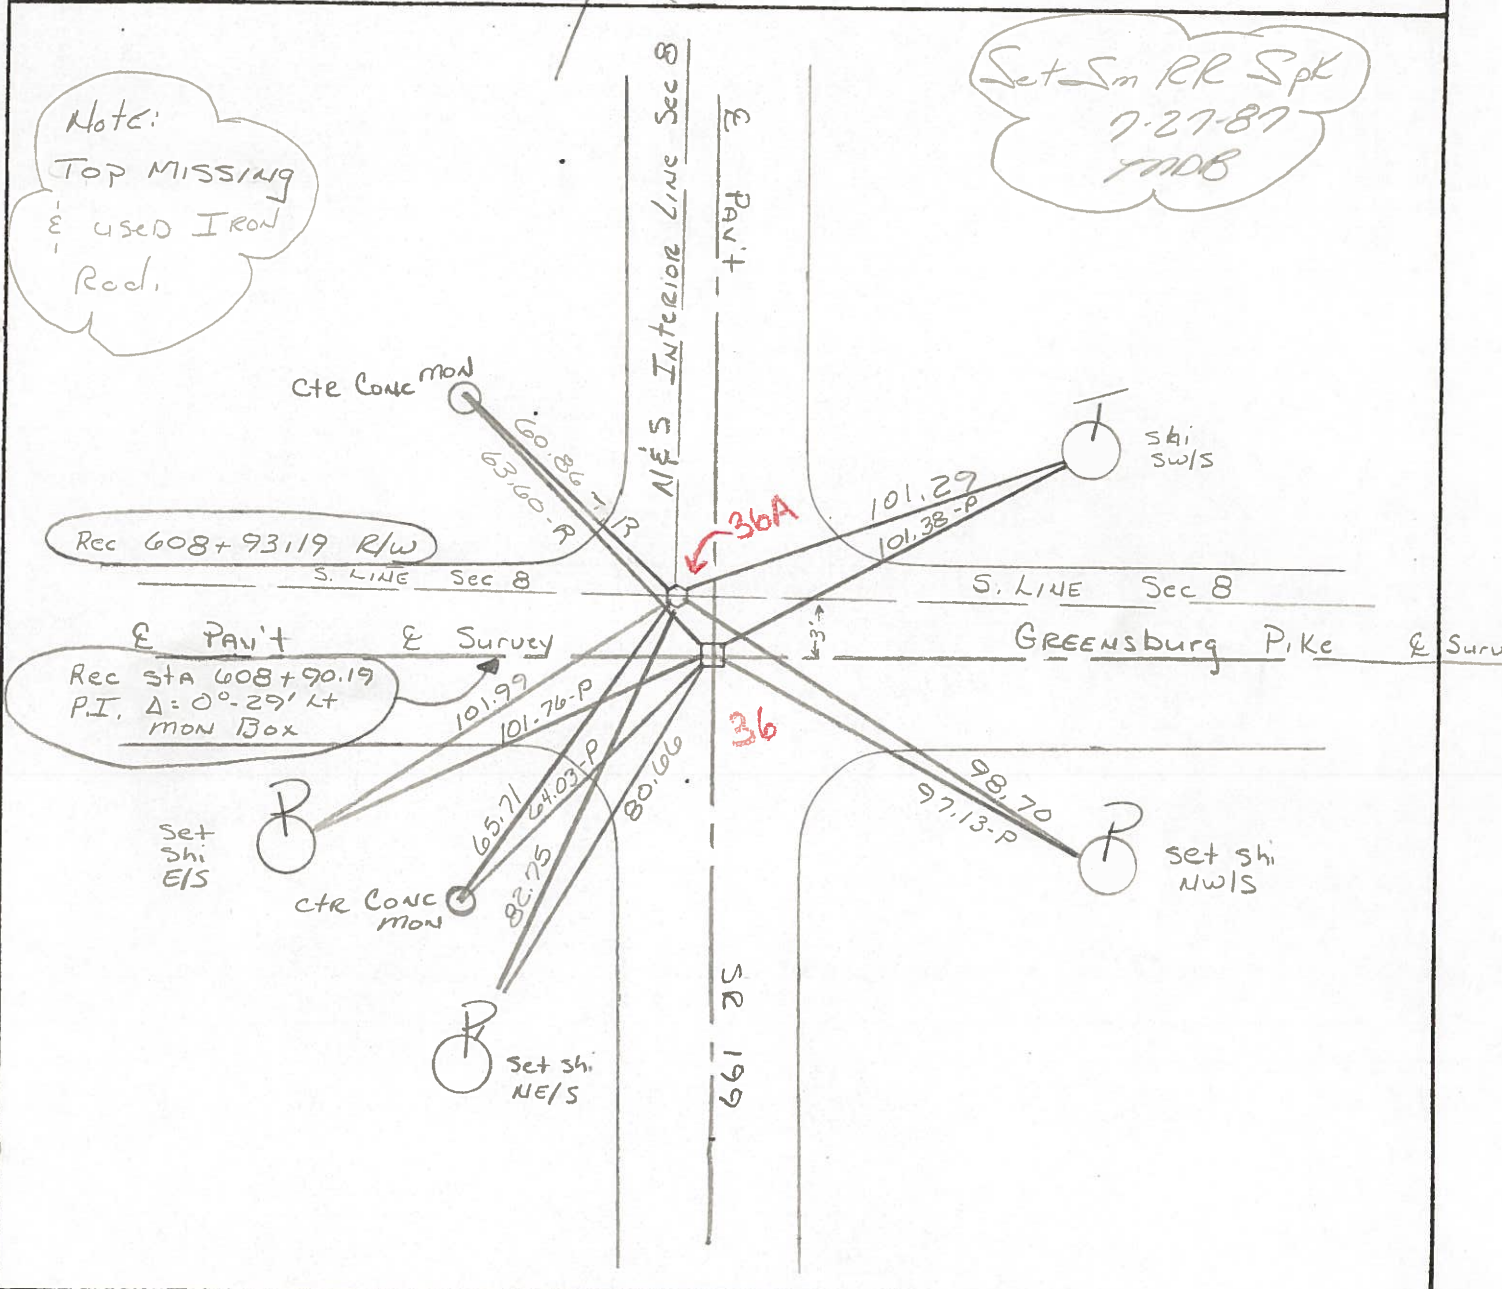 Note:
Top Missing
& used Iron
Rod.
Set Sm RR Spk
7-27-87
MDB
N&S Interior Line Sec 8
℄ Pav't
Ctr Conc Mon
60.86-R
63.60-R
36A
101.29
101.38-P
shi
SW/S
Rec 608+93.19 R/W
S. LINE Sec 8
S. LINE Sec 8
3'±
℄ PAV't ℄ Survey
GREENSburg Pike ℄ Surv
Rec Sta 608+90.19
P.I. Δ= 0°-29' Lt
Mon Box
36
101.99
101.76-P
65.71
64.03-P
82.75
80.66
98.70
97.13-P
Set
Shi
E/S
Ctr Conc
Mon
Set shi
NW/S
Set shi
NE/S
SR 199